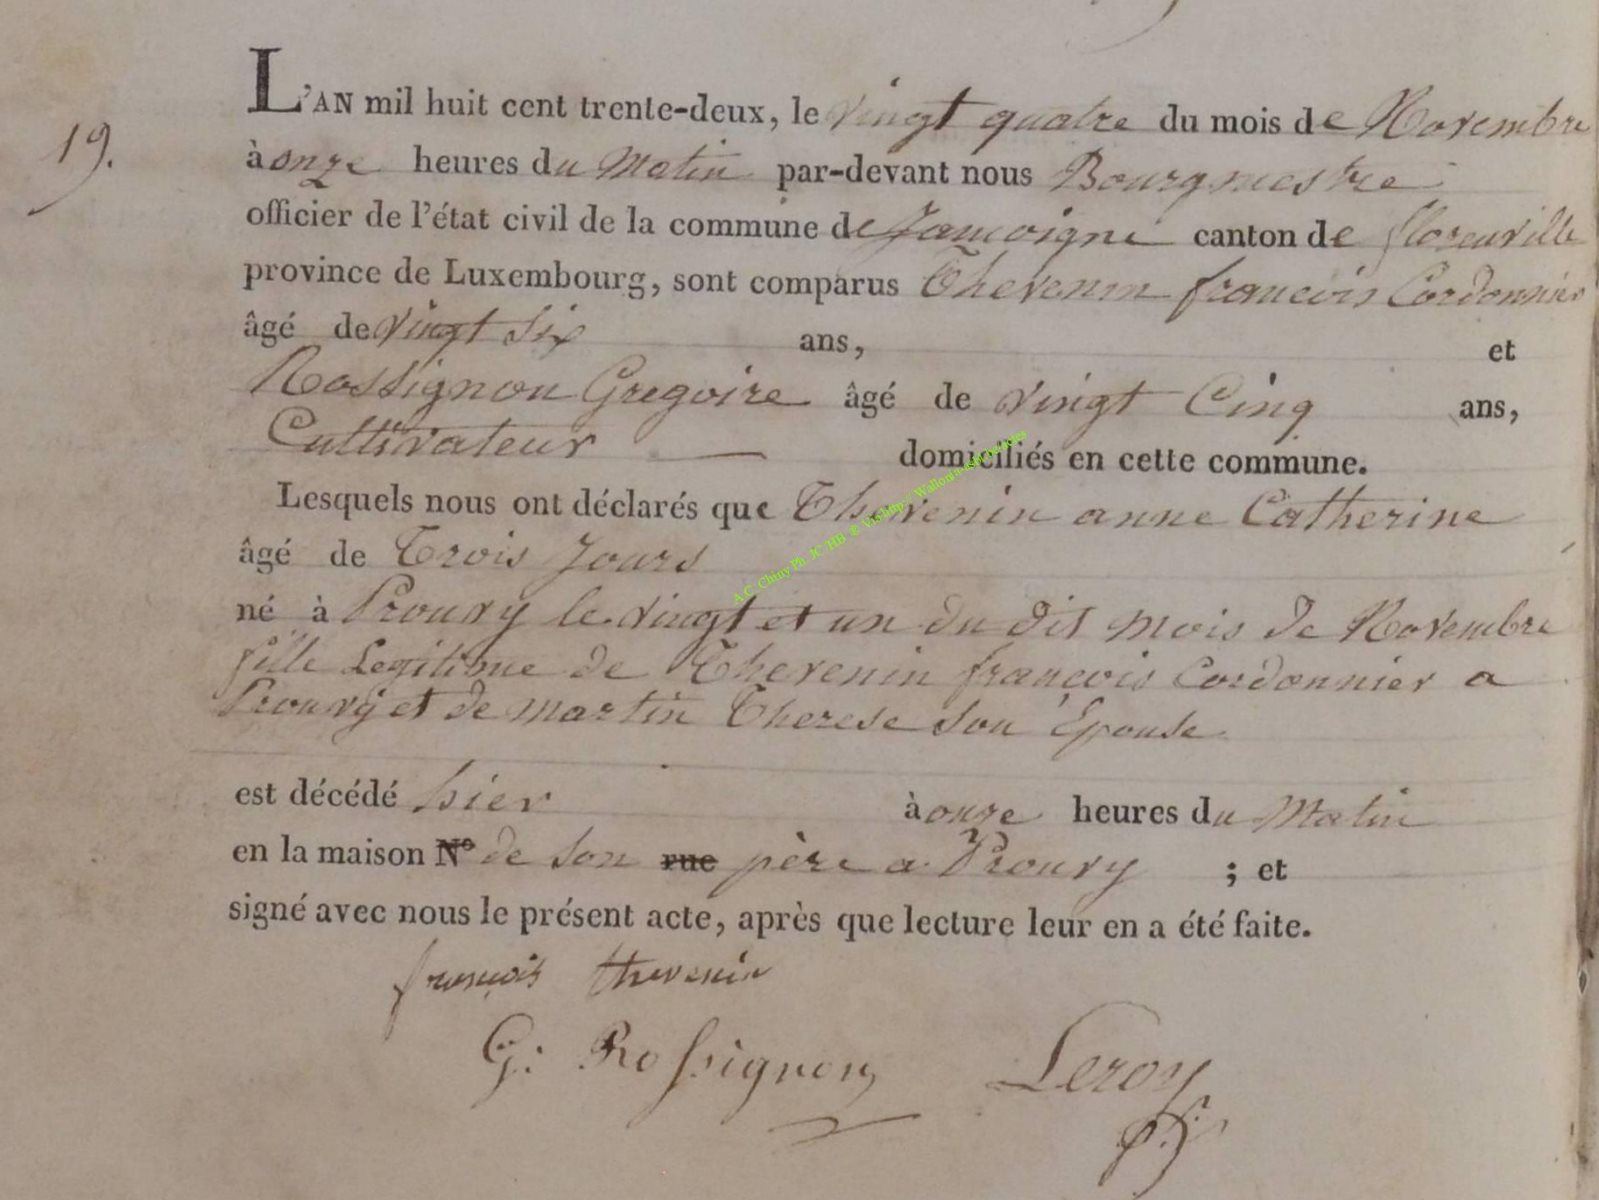 19.
L'AN mil huit cent trente-deux, le vingt quatre du mois de Novembre
à onze heures du Matin par-devant nous Bourgmestre
officier de l'état civil de la commune de Jamoigne canton de florenville
province de Luxembourg, sont comparus Thevenin francois Cordonnier
âgé de vingt six ans, et
Rossignon Gregoire âgé de vingt Cinq ans,
Cultivateur — domiciliés en cette commune.
Lesquels nous ont déclarés que Thevenin anne Catherine
âgé de Trois Jours
né à Prouvy le vingt et un du dit mois de Novembre
fille Legitime de Thevenin francois Cordonnier a
Prouvy et de martin Therese son Epouse
est décédé hier à onze heures du Matin
en la maison N° de son rue père a Prouvy ; et
signé avec nous le présent acte, après que lecture leur en a été faite.
françois thevenin
G: Rossignon Leroy
A.C. Chiny Ph. JC HB ©